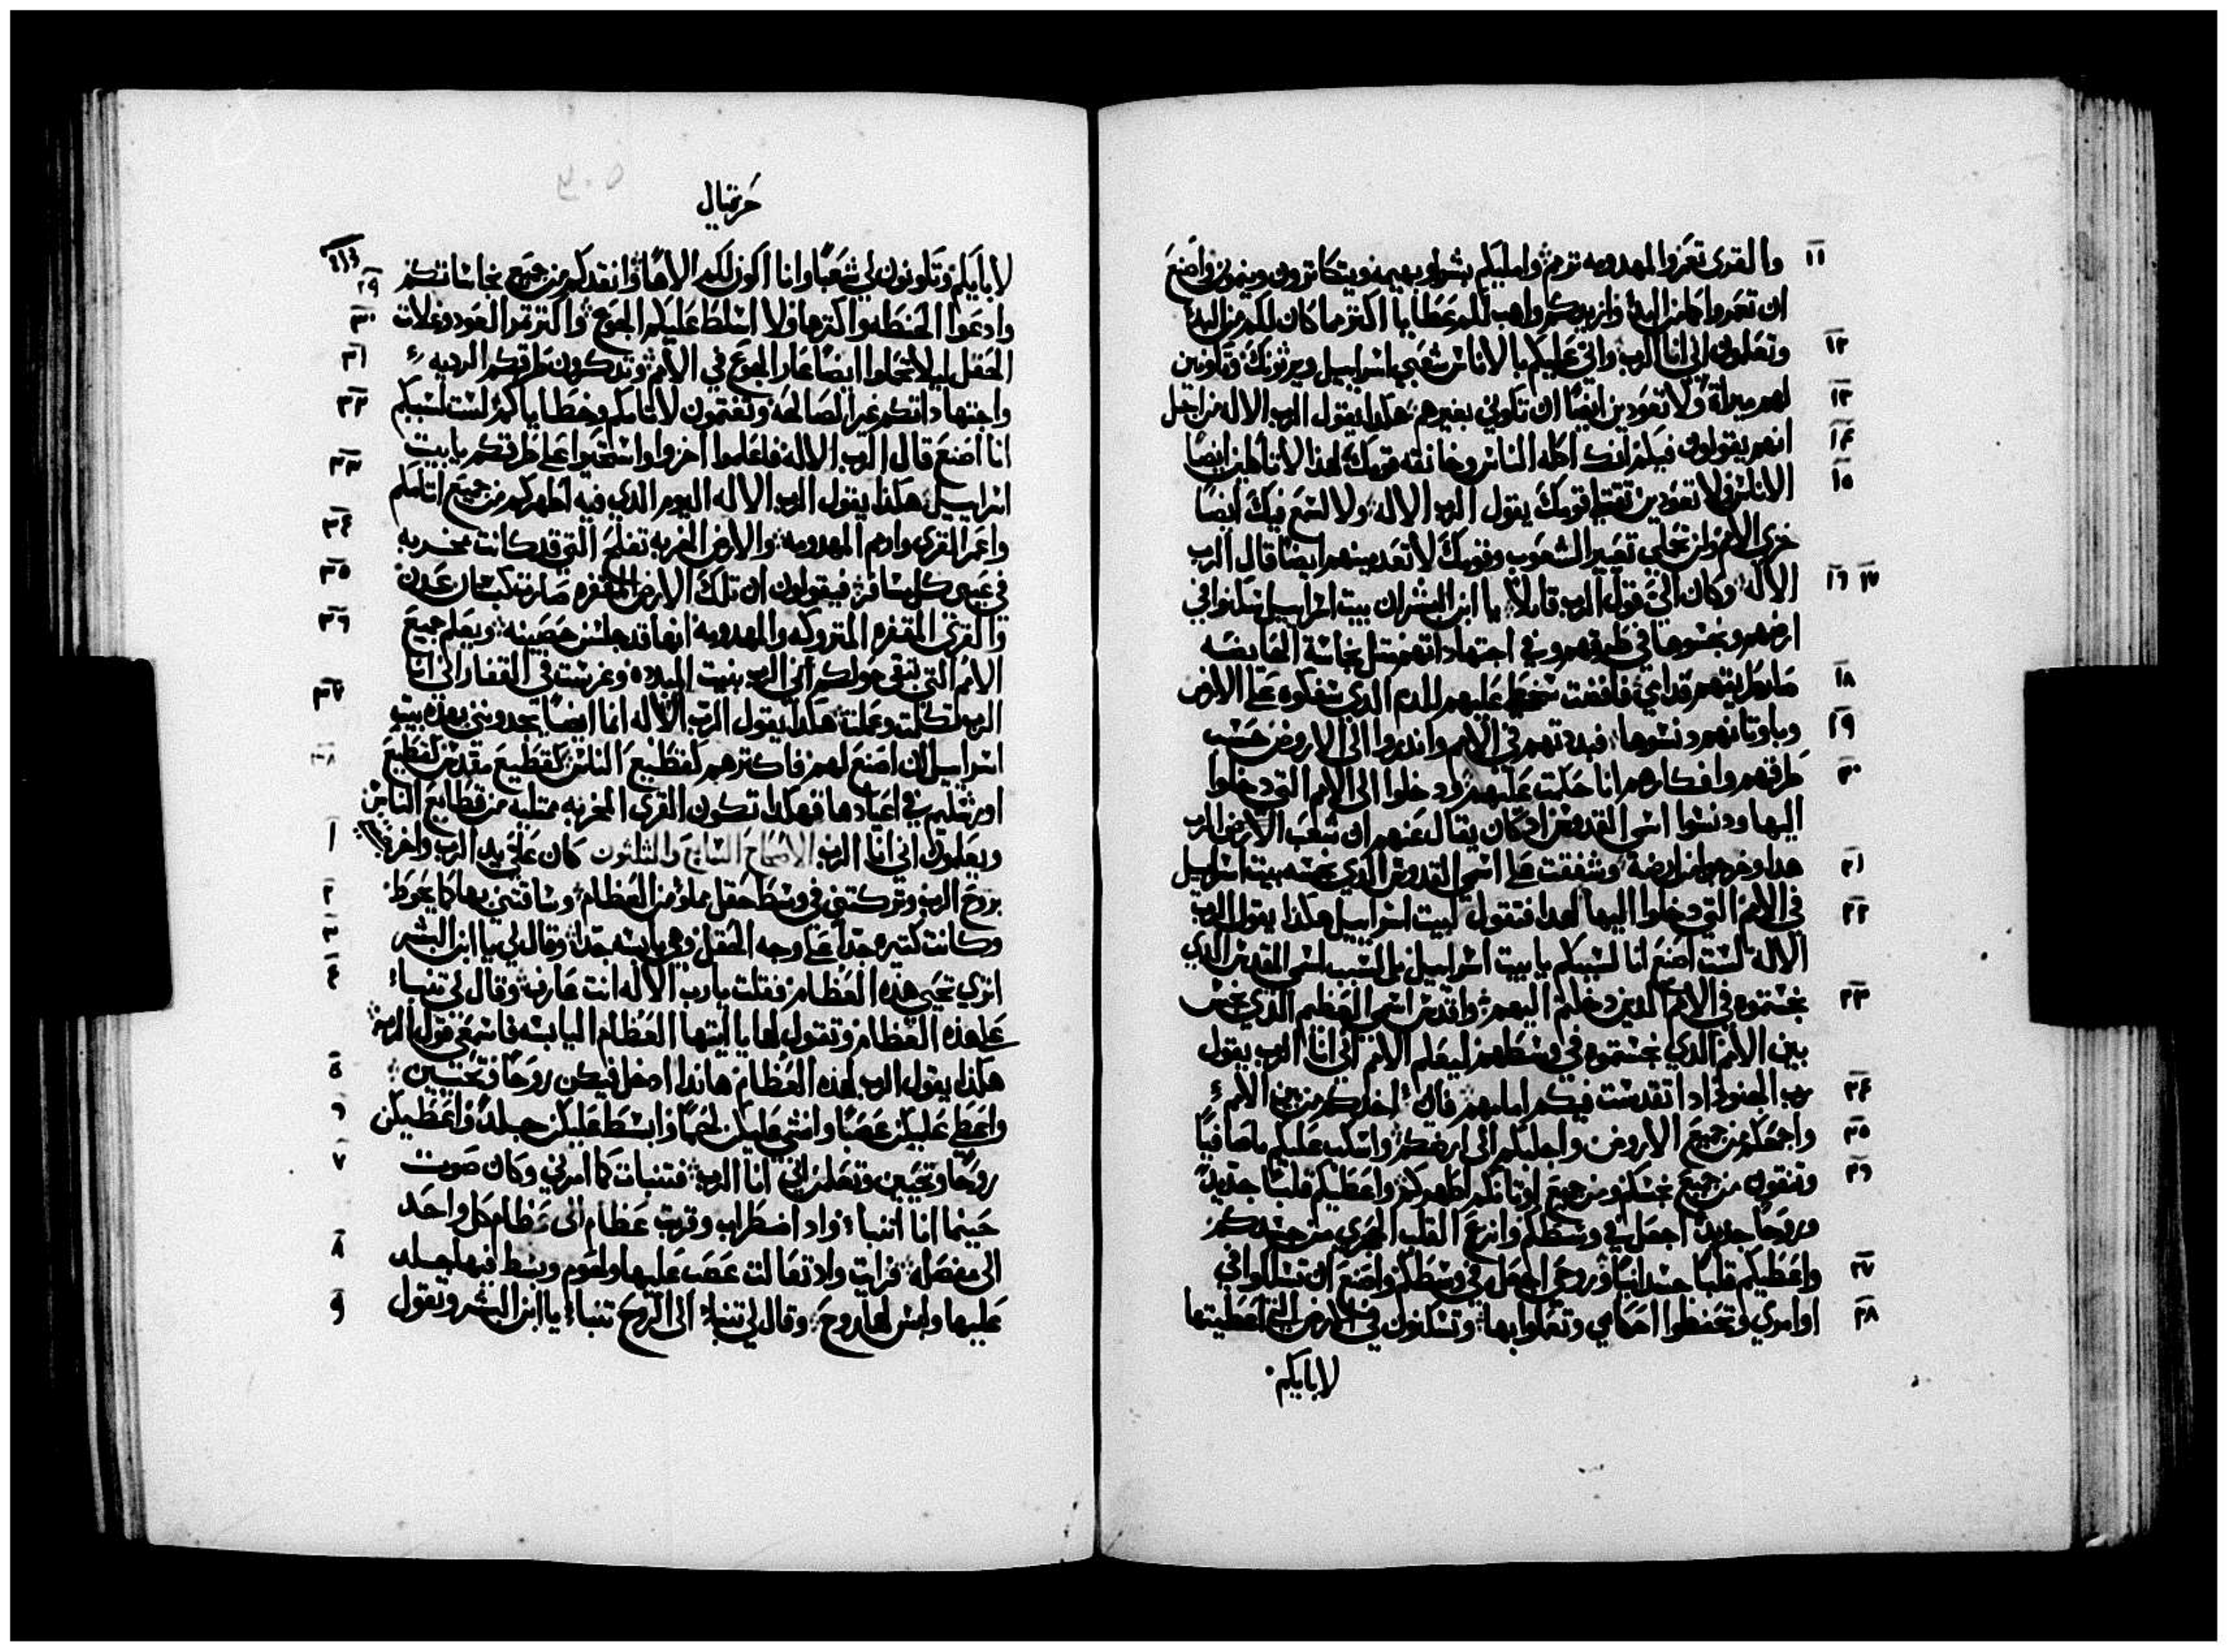 ١١ والقرى تعمروا المهدومه ترم واملیكم بشرا وبهيمه ويتكاثرون وينمون واضع
ان تعمروا كما من البدء وازيدكم واهب لكم عطايا اكثر مما كان لكم من البدء
١٢ وتعلمون اني انا الرب واتي عليكم بالاناس شعبي اسراييل ويرثونك وتكونين
١٣ لهم ميراثا ولا تعودين ايضا ان تكوني بغيرهم هكذا يقول الرب الاله من اجل
١٤ انهم يقولون فيكن انك اكله الناس وخانقه قومك لهذا لا تاكلين ايضا
١٥ الاناس ولا تعودين تقتلي قومك يقول الرب الاله ولا اسمع فيك ايضا
خزي الامم ولن تحملي تعيير الشعوب وقومك لا تعدمينهم ايضا قال الرب
١٦ ١٧ الاله وكان الي قول الرب قايلا يا ابن البشر ان بيت اسراييل سكنوا في
ارضهم ونجسوها في طريقهم وفي اجتهاداتهم مثل نجاسة الحايضه
١٨ صار طريقهم قدامي فافضت سخطي عليهم للدم الذي سفكوه على الارض
١٩ وباوثانهم دنسوها فبددتهم في الامم واندروا الى الاروض حسب
٢٠ طرقهم وافكارهم انا حكمت عليهم ودخلوا الى الامم التي دخلوا
اليها ودنسوا اسمي القدوس اذ كان يقال عنهم ان شعب الرب
٢١ هذا وخرجوا من ارضه وشفقت على اسمي القدوس الذي نجسه بيت اسراييل
٢٢ في الامم التي دخلوا اليها لهذا فتقول لبيت اسراييل هكذا يقول الرب
الاله لست اصنع انا لسببكم يا بيت اسراييل بل لسبب اسمي القدوس الذي
٢٣ نجستموه في الامم الذين دخلتم اليهم واقدس اسمي العظيم الذي نجس
بين الامم الذي نجستموه في وسطهم ليعلم الامم اني انا الرب يقول
٢٤ رب الجنود اذا تقدست فيكم امامهم فاني اخذكم من بين الامم
٢٥ واجمعكم من جميع الاروض واجلبكم الى ارضكم واسكب عليكم ما صافيا
٢٦ وتنقون من جميع نجسكم ومن جميع اوثانكم اطهركم واعطيكم قلبا جديدا
وروحا جديدا اجعل في وسطكم وانزع القلب الحجري من جسدكم
٢٧ واعطيكم قلبا جسدانيا وروحي اجعل في وسطكم واصنع ان تسلكوا في
٢٨ اوامري وتحفظوا احكامي وتعملوا بها وتسكنون في الارض التي اعطيتها
لابايكم
حزقيال
٢٩ لابايكم وتكونون لي شعبا وانا اكون لكم الاها وانقدكم من جميع نجاساتكم
٣٠ وادعوا الحنطه واكثرها ولا اسلط عليكم الجوع واكثر ثمر العود وغلات
٣١ الحقل ليلا تحملوا ايضا عار الجوع في الامم وتذكرون طرقكم الرديه
٣٢ واجتهاداتكم غير الصالحه وتغتمون لاثامكم وخطاياكم لست لسببكم
انا اصنع قال الرب الاله فاعلموا اخزوا واستحيوا على طرقكم يا بيت
٣٣ اسراييل هكذا يقول الرب الاله اليوم الذي فيه اطهركم من جميع اثامكم
٣٤ واعمر القرى وارم المهدومه والارض الخربه تفلح التي قد كانت مخربه
٣٥ في عيني كل مسافر فيقولون ان تلك الارض المقفره صارت كبستان عدن
٣٦ والقرى المقفره المتروكه والمهدومه انها قد جلست حصينه ويعلم جميع
الامم التي تبقى حولكم اني الرب بنيت المبدده وغرست في القفار اني انا
٣٧ الرب تكلمت وعملت هكذا يقول الرب الاله انما ايضا تجدونني بهذه بيت
٣٨ اسراييل ان اصنع لهم فاكثرهم كقطيع الناس كقطيع مقدس كقطيع
اورشليم في اعيادها فهكذا تكون القرى الخربه ممتليه من قطايع الناس
١ ويعلمون اني انا الرب الاصحاح السابع والثلثون كان علي يد الرب واخرجني
٢ بروح الرب وتركتني في وسط حقل مملو من العظام وساقتني بها كما يحوط
٣ وكانت كثيره جدا على وجه الحقل وهي يابسه جدا وقال لي يا ابن البشر
٤ اترى تحيى هذه العظام فقلت يا رب الاله انت عارف وقال لي تنباء
على هذه العظام وتقول لها يا ايتها العظام اليابسه فاسمعي قول الرب
٥ هكذا يقول الرب لهذه العظام هانذا ادخل فيكن روحا وتحيين
٦ واعطي عليكن عصبا وانشي عليكن لحما وابسط عليكن جلدا واعطيكن
٧ روحا وتحيين وتعلمن اني انا الرب فتنبات كما امرني وكان صوت
حينما انا اتنباء واذ اضطراب وقربت عظام الى عظام كل واحد
٨ الى مفصله فرايت واذ تعالت عصب عليها ولحوم وبسط فيها جلد
٩ عليها وليس لها روح وقال لي تنباء الى الروح تنباء يا ابن البشر وتقول